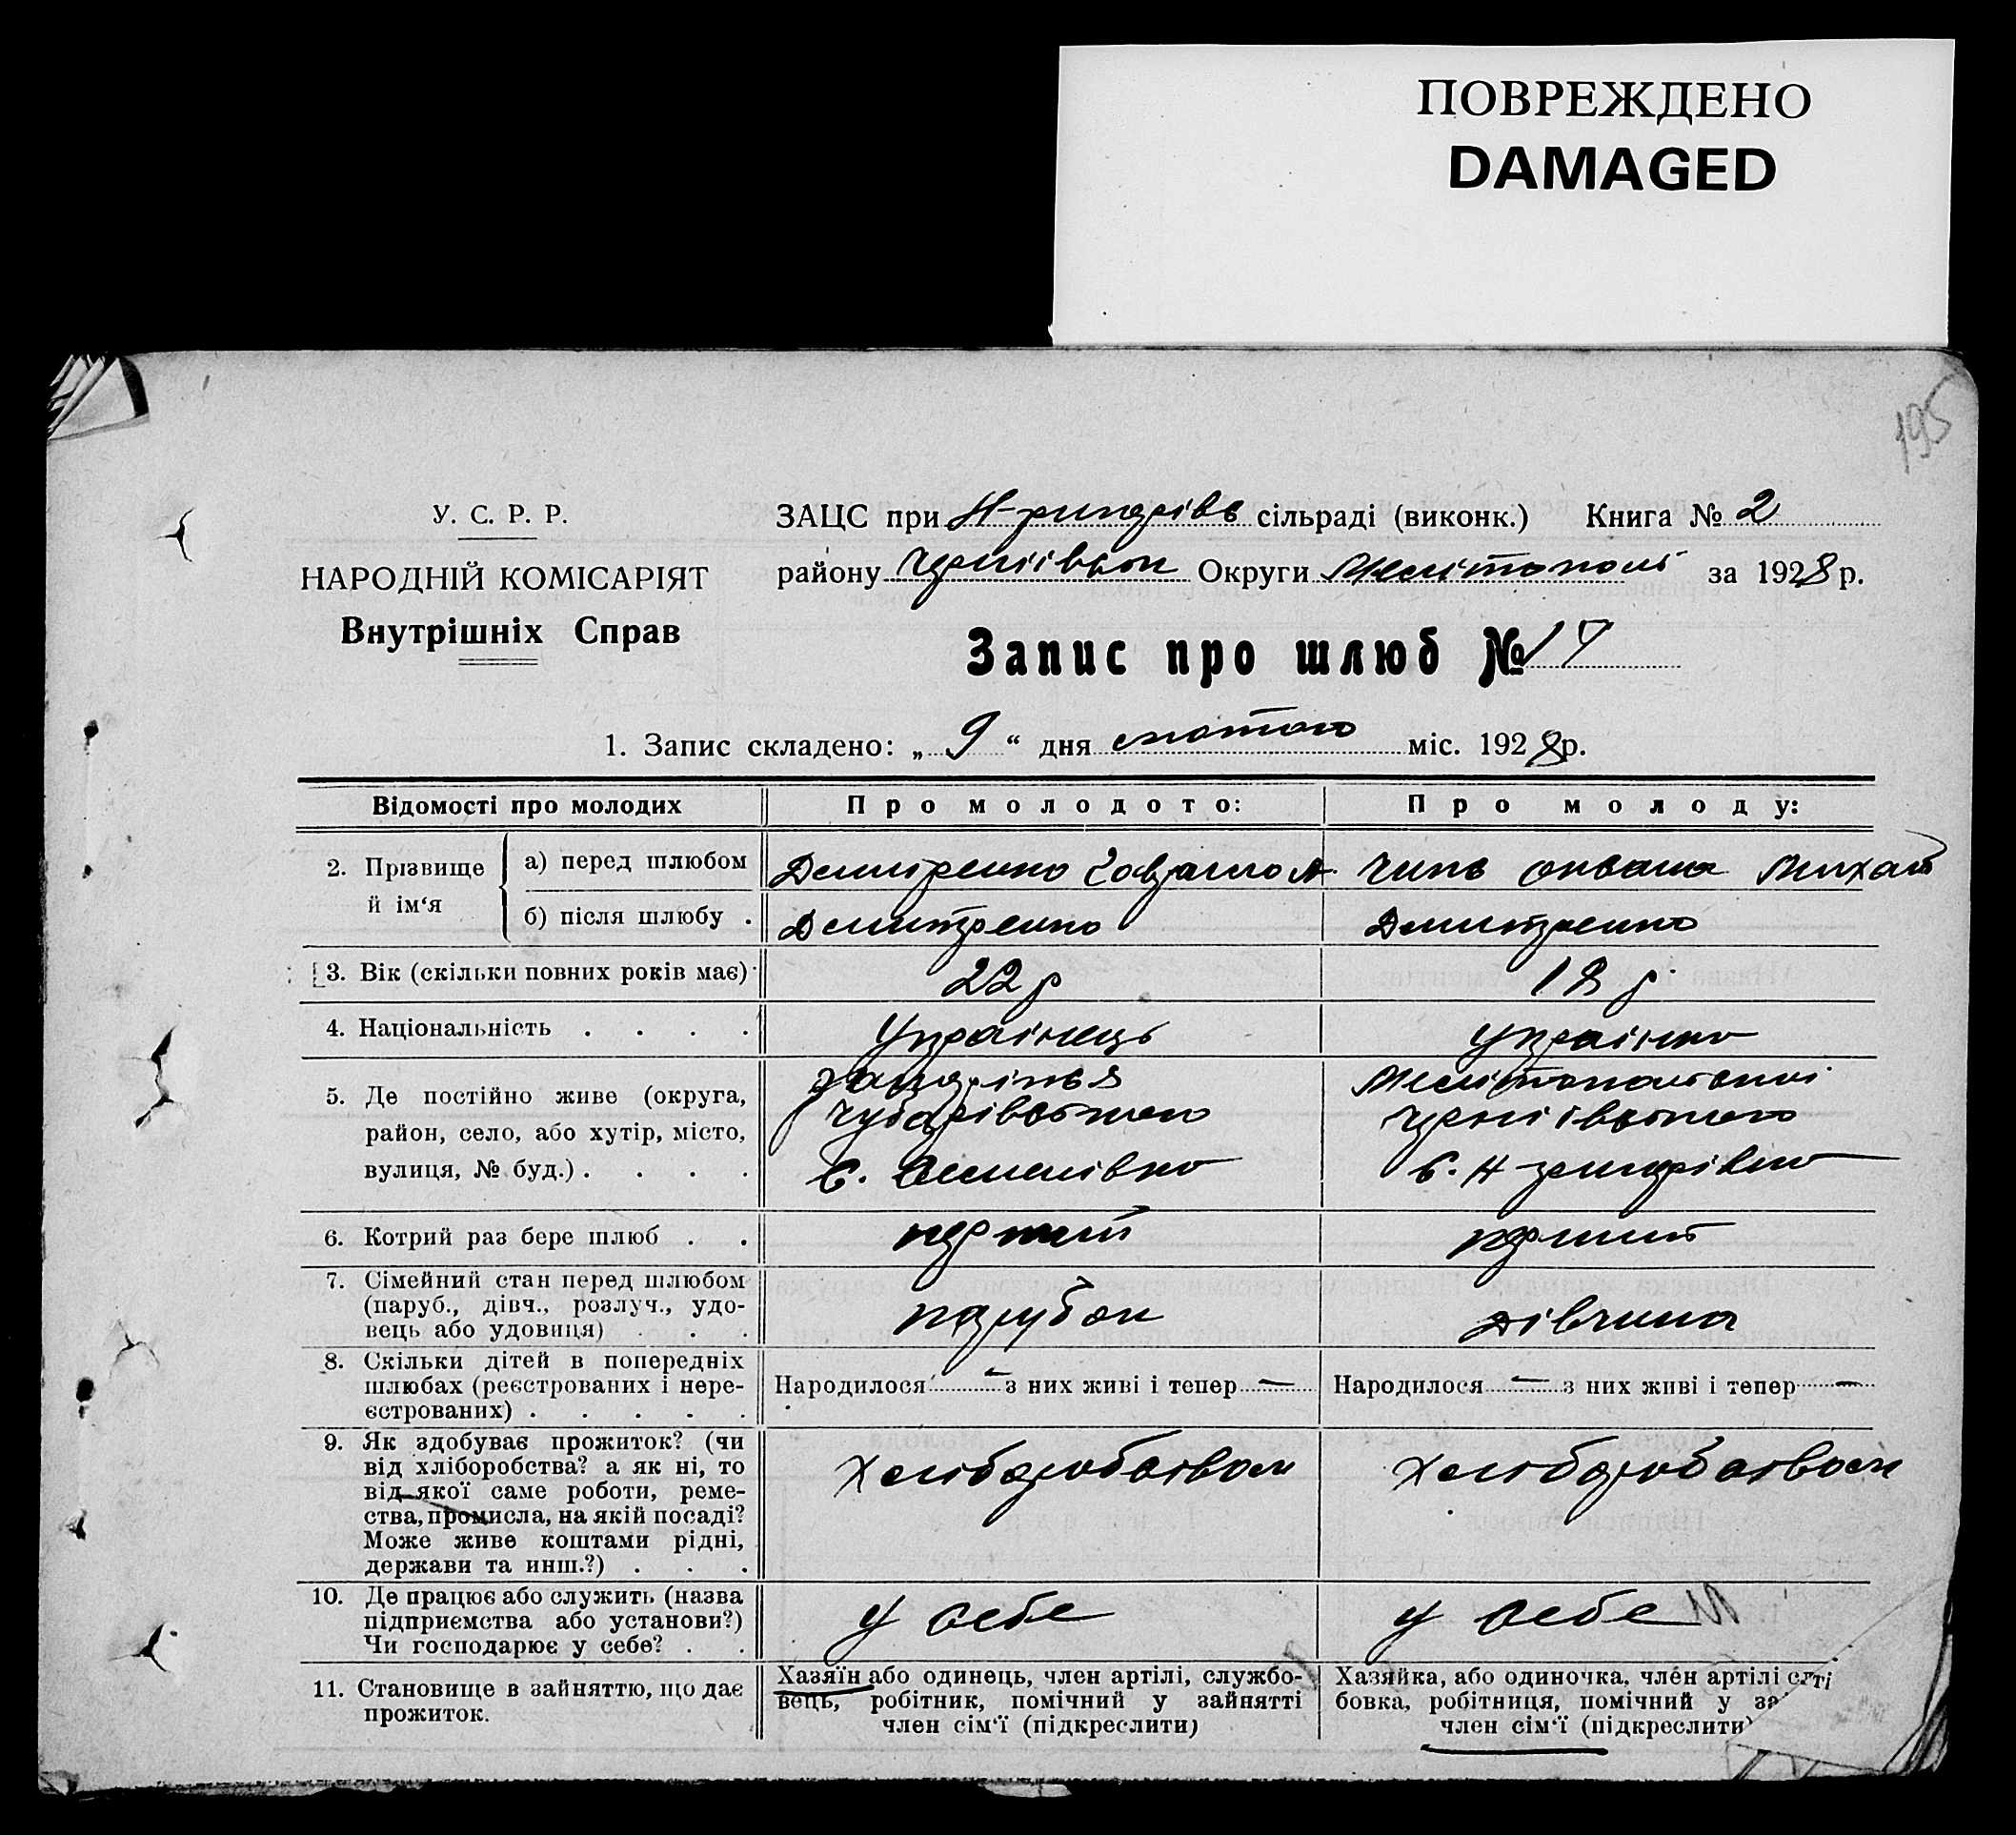 ПОВРЕЖДЕНО
DAMAGED
195
У. С. Р. Р.
НАРОДНІЙ КОМІСАРІЯТ
Внутрішніх Справ
ЗАЦС при сільраді (виконк.) Книга № 2
району Округи Мелітополь за 1928 р.
Запис про шлюб № 17
1. Запис складено: „ 9 “ дня лютого міс. 1928 р.
Відомості про молодих
Про молодого:
Про молоду:
2. Прізвище й ім‘я
а) перед шлюбом
Дмитренко
Михай
б) після шлюбу .
Дмитренко
Дмитренко
3. Вік (скільки повних років має)
22 р
18 р
4. Національність . . . .
Українець
українка
5. Де постійно живе (округа,
район, село, або хутір, місто,
вулиця, № буд.) . . . .
Чубарівського
с. Семенівка
Мелітопольської
с. Н
6. Котрий раз бере шлюб . .
перший
перший
7. Сімейний стан перед шлюбом
(паруб., дівч., розлуч., удо-
вець або удовиця) . . .
парубок
дівчина
8. Скільки дітей в попередніх
шлюбах (реєстрованих і нере-
єстрованих) . . . . .
Народилося — з них живі і тепер —
Народилося — з них живі і тепер —
9. Як здобуває прожиток? (чи
від хліборобства? а як ні, то
від якої саме роботи, реме-
ства, промисла, на якій посаді?
Може живе коштами рідні,
держави та инш.?) . . .
Хліборобством
Хліборобством
10. Де працює або служить (назва
підприємства або установи?)
Чи господарює у себе? . .
у себе
у себе
11. Становище в зайняттю, що дає
прожиток.
Хазяїн або одинець, член артілі, службо-
вець, робітник, помічний у зайнятті
член сім‘ї (підкреслити)
Хазяйка, або одиночка, член артілі
бовка, робітниця, помічний у
член сім‘ї (підкреслити)